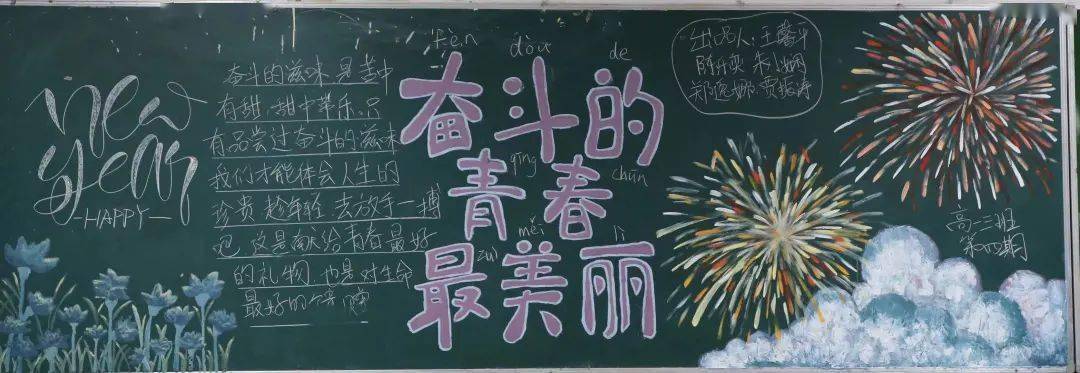 new
year
-HAPPY-
奋斗的滋味是苦中
有甜,甜中带乐.只
有品尝过奋斗的滋味
我们才能体会人生的
珍贵 趁年轻 去放手一搏
吧 这是献给青春最好
的礼物 也是对生命
最好的馈赠
fèn dòu de
奋斗的
qīng chūn
青春
zuì měi lì
最美丽
出品人:王
郑 贾
高一三班
第四期